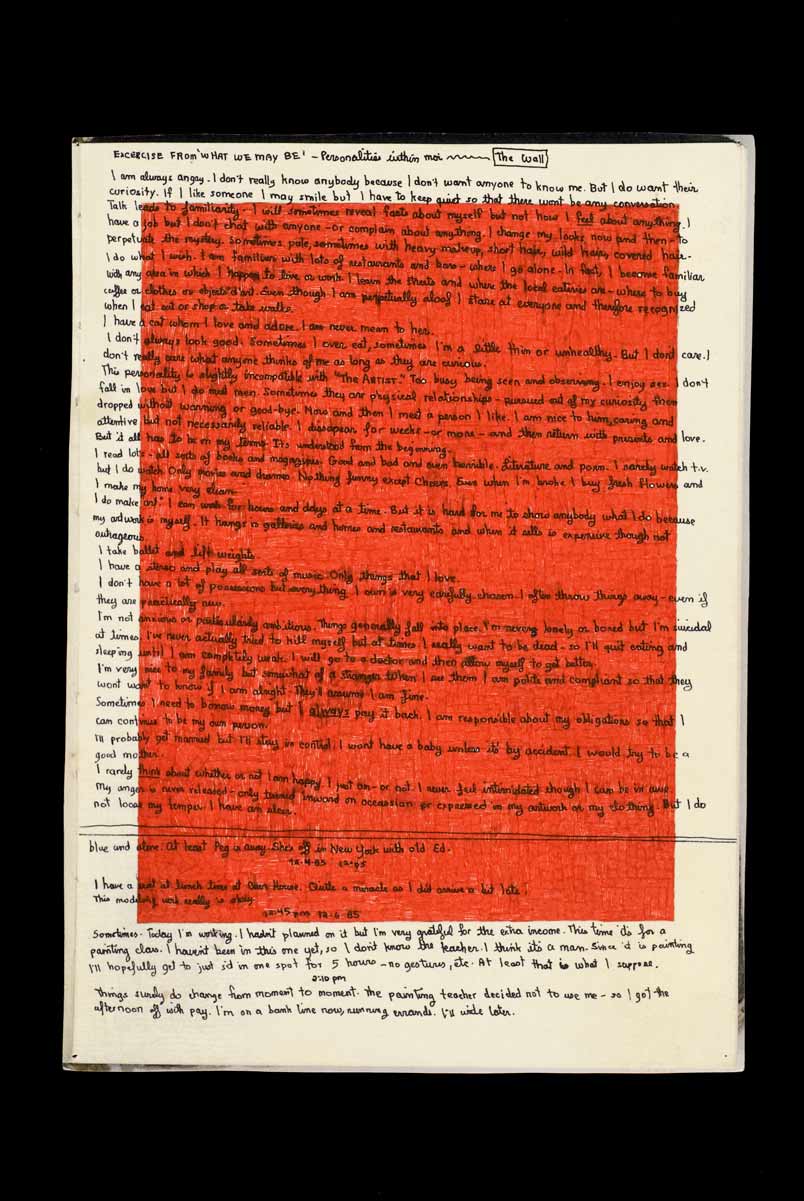 EXCERCISE FROM 'WHAT WE MAY BE' - Personalities within moi The Wall
I am always angry. I don't really know anybody because I don't want anyone to know me. But I do want their
curiosity. If I like someone I may smile but I have to keep quiet so that there wont be any conversation.
Talk leads to familiarity - I will sometimes reveal facts about myself but not how I feel about anything. I
have a job but I don't chat with anyone - or complain about anything. I change my looks now and then - to
perpetuate the mystery. Sometimes pale, sometimes with heavy makeup, short hair, wild hair, covered hair -
I do what I wish. I am familiar with lots of restaurants and bars - where I go alone. In fact, I become familiar
with any area in which I happen to live or work. I learn the streets and where the local eateries are - where to buy
coffee or clothes or objects d'art. Even though I am perpetually aloof I stare at everyone and therefore recognized
when I eat out or shop or take walks.
I have a cat whom I love and adore. I am never mean to her.
I don't always look good. Sometimes I over eat, sometimes I'm a little thin or unhealthy. But I don't care. I
don't really care what anyone thinks of me as long as they are curious.
This personality is slightly incompatible with "The ARTIST." Too busy being seen and observing. I enjoy sex. I don't
fall in love but I do need men. Sometimes they are physical relationships - pursued out of my curiosity then
dropped without warning or good-bye. Now and then I meet a person I like. I am nice to him, caring and
attentive but not necessarily reliable. I dissapear for weeks - or more - and then return with presents and love.
But it all has to be on my terms. It's understood from the beginning.
I read lots - all sorts of books and magazines. Good and bad and even horrible. Literature and porn. I rarely watch t.v.
but I do watch. Only movies and dramas. Nothing funny except Cheers. Even when I'm broke I buy fresh flowers and
I make my home very clean.
I do make art. I can work for hours and days at a time. But it is hard for me to show anybody what I do because
my artwork is myself. It hangs in galleries and homes and restaurants and when it sells is expensive though not
outrageous.
I take ballet and lift weights.
I have a stereo and play all sorts of music. Only things that I love.
I don't have a lot of possessions but everything I own is very carefully chosen. I often throw things away - even if
they are practically new.
I'm not anxious or particularly ambitious. Things generally fall into place. I'm never lonely or bored but I'm suicidal
at times. I've never actually tried to kill myself but at times I really want to be dead - so I'll quit eating and
sleeping until I am completely weak. I will go to a doctor and then allow myself to get better.
I'm very nice to my family but somewhat of a stranger. When I see them I am polite and compliant so that they
wont want to know if I am alright. They'll assume I am fine.
Sometimes I need to borrow money but I always pay it back. I am responsible about my obligations so that I
can continue to be my own person.
I'll probably get married but I'll stay in control. I wont have a baby unless it's by accident. I would try to be a
good mother.
I rarely think about whether or not I am happy. I just am - or not. I never feel intimidated though I can be in awe.
My anger is never released - only turned inward on occassion or expressed in my artwork or my clothing. But I do
not loose my temper. I have an ulcer.
blue and alone. At least Peg is away. She's off in New York with old Ed.
12-4-85 12:05
I have a seat at lunch time at Open House. Quite a miracle as I did arrive a bit late!
This modeling work really is okay.
12:45 pm 12-6-85
Sometimes. Today I'm working. I hadn't planned on it but I'm very grateful for the extra income. This time it's for a
painting class. I haven't been in this one yet, so I don't know the teacher. I think it's a man. Since it is painting
I'll hopefully get to just sit in one spot for 5 hours - no gestures, etc. At least that is what I suppose.
2:10 pm
Things surely do change from moment to moment. The painting teacher decided not to use me - so I got the
afternoon off with pay. I'm on a bank line now, running errands. I'll write later.